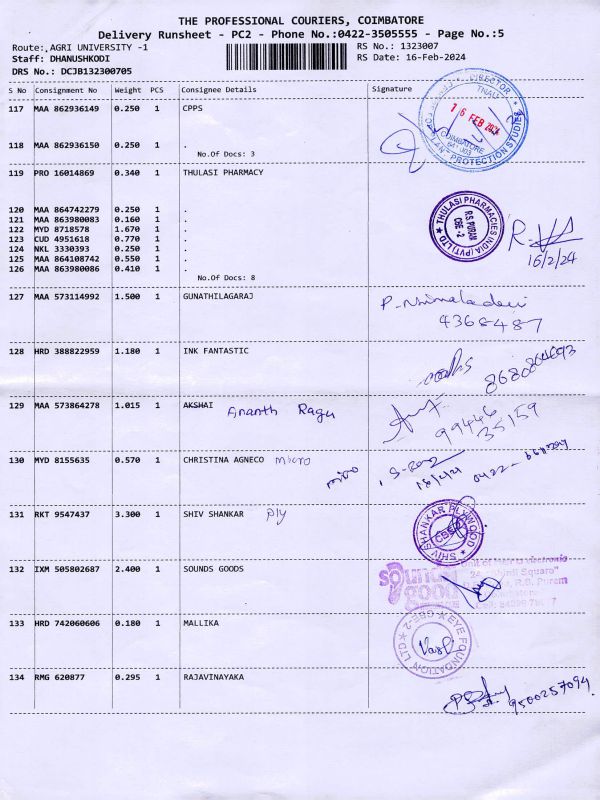 THE PROFESSIONAL COURIERS, COIMBATORE
Delivery Runsheet - PC2 - Phone No.:0422-3505555 - Page No.:5
Route: AGRI UNIVERSITY -1
RS No.: 1323007
Staff: DHANUSHKODI
RS Date: 16-Feb-2024
DRS No.: DCJB132300705
S No Consignment No Weight PCS Consignee Details Signature
117 MAA 862936149 0.250 1 CPPS
DIRECTOR
16 FEB 2024
COIMBATORE
PLAN PROTECTION STUDIES
118 MAA 862936150 0.250 1 .
No.Of Docs: 3
119 PRO 16014869 0.340 1 THULASI PHARMACY
THULASI PHARMACIES INDIA (PVT) LTD
R.S. PURAM
CBE -2
16/2/24
120 MAA 864742279 0.250 1 .
121 MAA 863980083 0.160 1 .
122 MYD 8718578 1.670 1 .
123 CUD 4951618 0.770 1 .
124 NKL 3330393 0.250 1 .
125 MAA 864108742 0.550 1 .
126 MAA 863980086 0.410 1 .
No.Of Docs: 8
127 MAA 573114992 1.500 1 GUNATHILAGARAJ
P. Nirmaladevi
4368487
128 HRD 388822959 1.180 1 INK FANTASTIC
129 MAA 573864278 1.015 1 AKSHAI Ananth Ragu
99446
35159
130 MYD 8155635 0.570 1 CHRISTINA AGNECO micro
micro
131 RKT 9547437 3.300 1 SHIV SHANKAR Ply
SHIV SHANKAR PLYWOOD
132 IXM 505802687 2.400 1 SOUNDS GOODS
sounds
good
R.S. Puram
133 HRD 742060606 0.180 1 MALLIKA
EYE FOUNDATION LTD
CBE-2
134 RMG 620877 0.295 1 RAJAVINAYAKA
9500257094